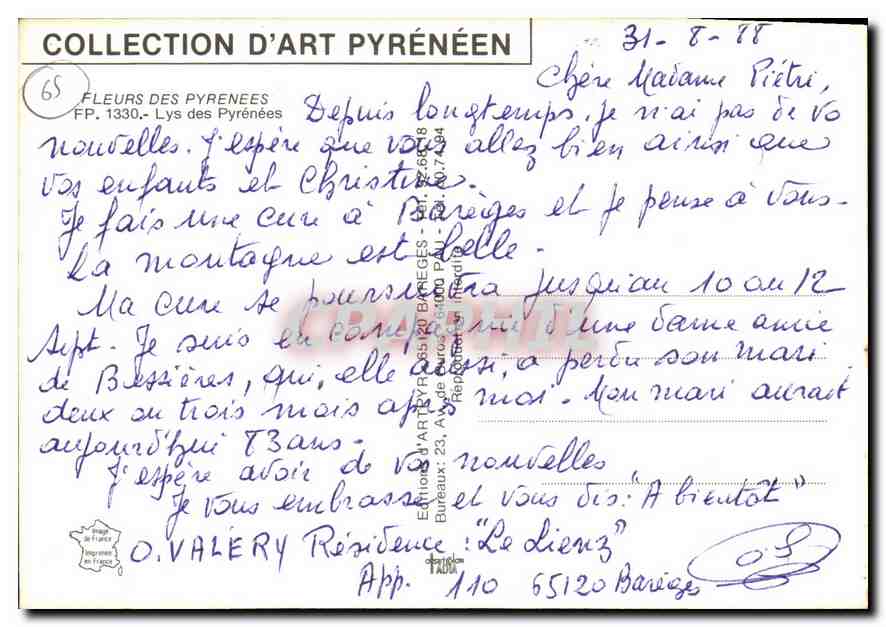 COLLECTION D'ART PYRÉNÉEN
31-8-88
65
FLEURS DES PYRENEES
FP. 1330.- Lys des Pyrénées
Chère Madame Piétri,
Depuis longtemps, je n'ai pas de vo
nouvelles. J'espère que vous allez bien ainsi que
vos enfants et Christine.
Je fais une cure à Barèges et je pense à vous.
La montagne est belle.
Ma cure se poursuivra jusqu'au 10 ou 12
Sept. Je suis en compagnie d'une dame amie
de Bessières, qui, elle aussi, a perdu son mari
deux ou trois mois après moi. Mon mari aurait
aujourd'hui 83 ans.
J'espère avoir de vos nouvelles
Je vous embrasse et vous dis: "A bientôt"
O. VALERY Résidence: "Le Lienz"
App. 110 65120 Barèges
Image
de France
Imprimée
en France
Reproduction interdite
CPAPHIL